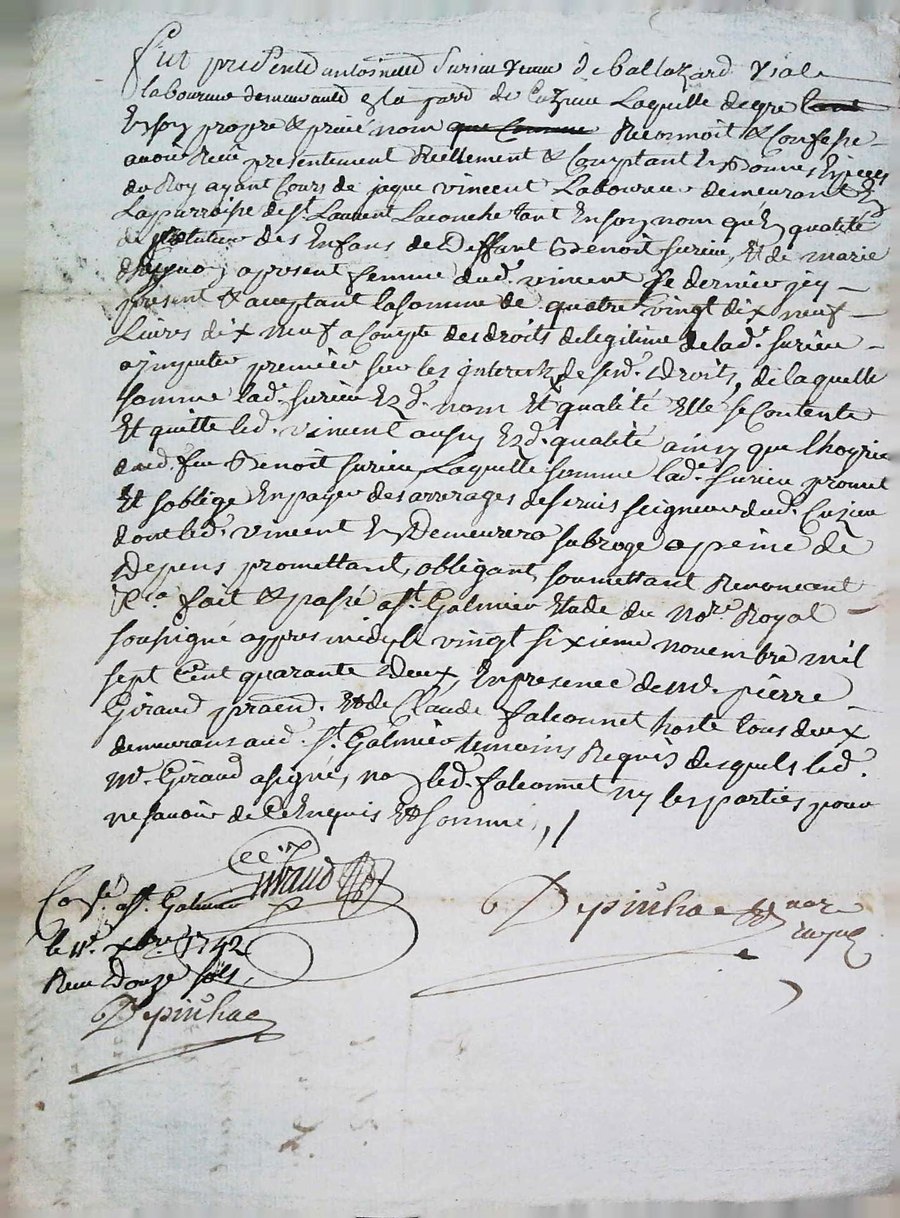 fut presente antoinette Surieu veuve de Baltazard Viale
laboureur demeurante est la parr de Cuzieu Laquelle de gre
En son propre & privé nom que Comme Reconnoit & Confesse
avoir Reçu presentement Reellement & Comptant En Bonnes Espèces
du Roy ayant Cours de jaque vincent Laboureur demeurant En
La parroisse de St. Laurent Laconche tant En son nom qu'En qualité
de tuteur des Enfans de Deffunt Benoit Surieu, Et de marie
apresent femme dud. vincent Ce dernier icy
present & acceptant la somme de quatre vingt dix neuf
Livres dix neuf a Compte des droits de legitime de lad. Surieu
a imputer premier sur les interets de sesd. Droits, de laquelle
somme lad. Surieu Ezd. nom Et qualité Elle se Contente
Et quitte led. vincent aussy Ezd. qualité ainsy que l'hoyrie
dud. feu Benoit Surieu, Laquelle somme lad. Surieu promet
Et soblige En payer des arrerages de servis seigneur dud. Cuzieu
dont led. vincent En Demeurera subroge a peine de
Depens promettant, obligant, soumettant Renoncent
&c.a fait & passé a St. Galmier Etude du No.re Royal
soussigné appres midy, le vingt sixieme novembre mil
sept Cent quarante Deux, En presence de Me. pierre
Giraud pratn. Et de Claude falconnet hoste tous deux
demeurans aud. St. Galmier temoins Requis desquels led.
Me. Giraud a signé, non led. falconnet ny les parties pour
ne savoir de Ce Enquis Et Sommé, /
Giraud
Conlé a St. Galmier
le 11e. Xbre 1742
Reçu Douze sols,
Depiuhac
Depiuhac no.re